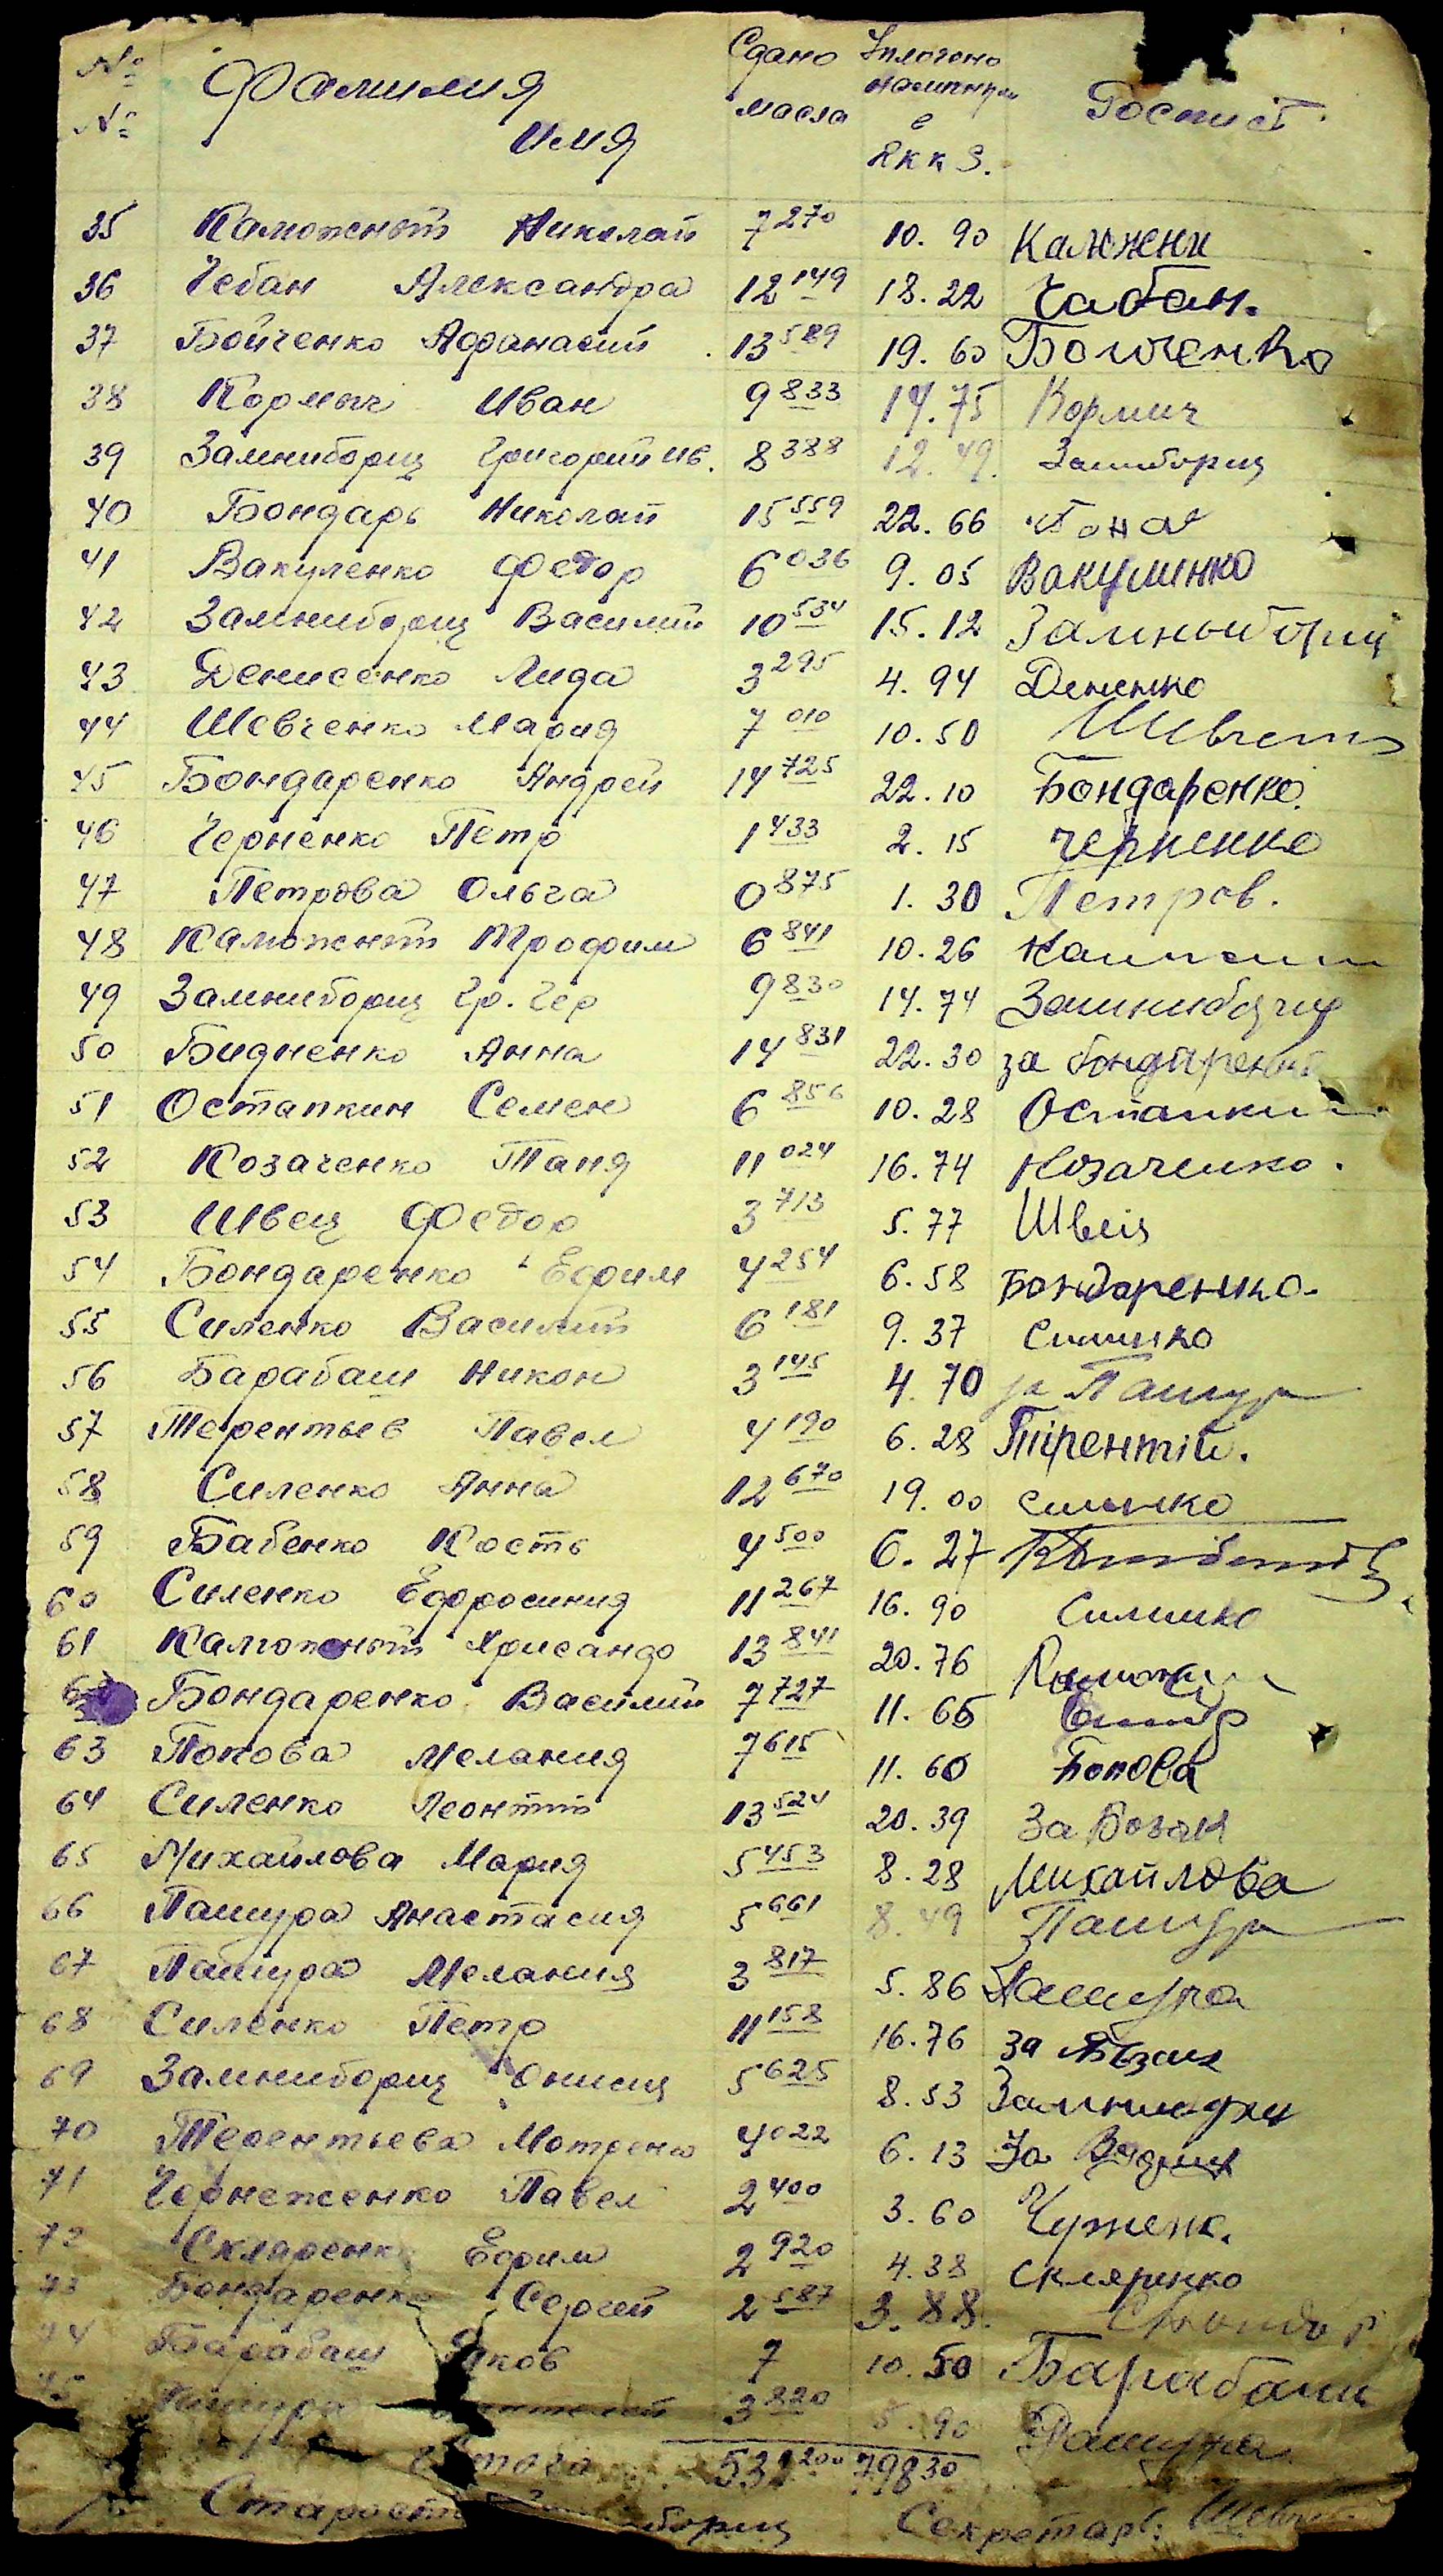 № Фамилия Сдано Уплочено Роспись
№ имя масла наличными в
RKKS.
35 Камюжный Николай 7 270 10.90 Калюжни
36 Чебан Александра 12 149 18.22 Чабан.
37 Бойченко Афанасий 13 589 19.60 Бойченко
38 Кормыч Иван 9 833 14.75 Кормич
39 Замниборщ Григорий Ив. 8 388 12.49
40 Бондарь Николай 15 559 22.66
41 Вакуленко Федор 6 036 9.05 Вакулинко
42 Замниборщ Василий 10 534 15.12 Замныборщ
43 Денисенко Лида 3 295 4.94
44 Шевченко Мария 7 010 10.50
45 Бондаренко Андрей 14 725 22.10 Бондаренко.
46 Черненко Петр 1 433 2.15 Черненко
47 Петрова Ольга 0 875 1.30 Петров.
48 Камюжный Трофим 6 841 10.26
49 Замниборщ Гр. Гер 9 830 14.74
50 Бидненко Анна 14 831 22.30 за бондаренко
51 Остапкин Семен 6 856 10.28 Остапкин
52 Козаченко Таня 11 024 16.74 Козаченко.
53 Швец Федор 3 713 5.77
54 Бондаренко Ефрим 4 254 6.58 Бондаренко.
55 Силенко Василий 6 181 9.37
56 Барабаш Никон 3 145 4.70 за Пашура
57 Терентьев Павел 4 190 6.28 Тірентій.
58 Силенко Анна 12 670 19.00
59 Бабенко Кость 4 500 6.27
60 Силенко Ефросиния 11 267 16.90
61 Камюжный Хрисандо 13 841 20.76
Бондаренко Василий 7 727 11.65
63 Попова Мелания 7 615 11.60 Бопова
64 Силенко Леонтий 13 524 20.39 За
65 Михайлова Мария 5 453 8.28 Михайлова
66 Пашура Анастасия 5 661 8.49 Пашура
67 Пашура Мелания 3 817 5.86 Пашура
68 Силенко Петр 11 158 16.76 за
69 Замниборщ Онисия 5 625 8.53
70 Терентьева Мотрена 4 022 6.13 За
71 Чернеженко Павел 2 400 3.60
72 Скляренко Ефрим 2 920 4.38 Скляринко
73 Бондаренко Сергей 2 587 3.88.
74 Барабаш Яков 7 10.50 Барабаш
75 Пашура 3 820 5.90 Пашура
Итого 531 200 798 30
Староста Секретарь: